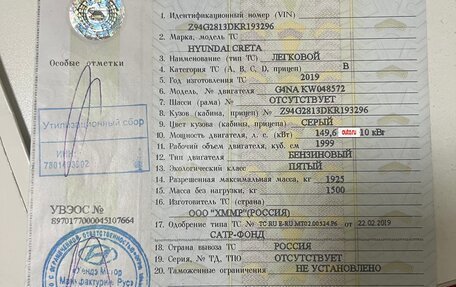 1. Идентификационный номер (VIN)
Z94G2813DKR193296
2. Марка, модель ТС
HYUNDAI CRETA
Особые отметки
3. Наименование (тип ТС) ЛЕГКОВОЙ
4. Категория ТС (А, В, С, D, прицеп) В
5. Год изготовления ТС 2019
6. Модель, № двигателя G4NA KW048572
7. Шасси (рама) № ОТСУТСТВУЕТ
8. Кузов (кабина, прицеп) № Z94G2813DKR193296
9. Цвет кузова (кабины, прицепа) СЕРЫЙ
10. Мощность двигателя, л. с. (кВт) 149,6 auto.ru 10 кВт
11. Рабочий объем двигателя, куб. см 1999
12. Тип двигателя БЕНЗИНОВЫЙ
13. Экологический класс ПЯТЫЙ
14. Разрешенная максимальная масса, кг 1925
15. Масса без нагрузки, кг 1500
16. Изготовитель ТС (страна)
ООО "ХММР"(РОССИЯ)
17. Одобрение типа ТС № ТС RU E-RU.MT02.00524.P6 от 22.02.2019
САТР-ФОНД
18. Страна вывоза ТС РОССИЯ
19. Серия, № ТД, ТПО ОТСУТСТВУЕТ
20. Таможенные ограничения НЕ УСТАНОВЛЕНО
Утилизационный сбор
ИНН
УВЭОС №